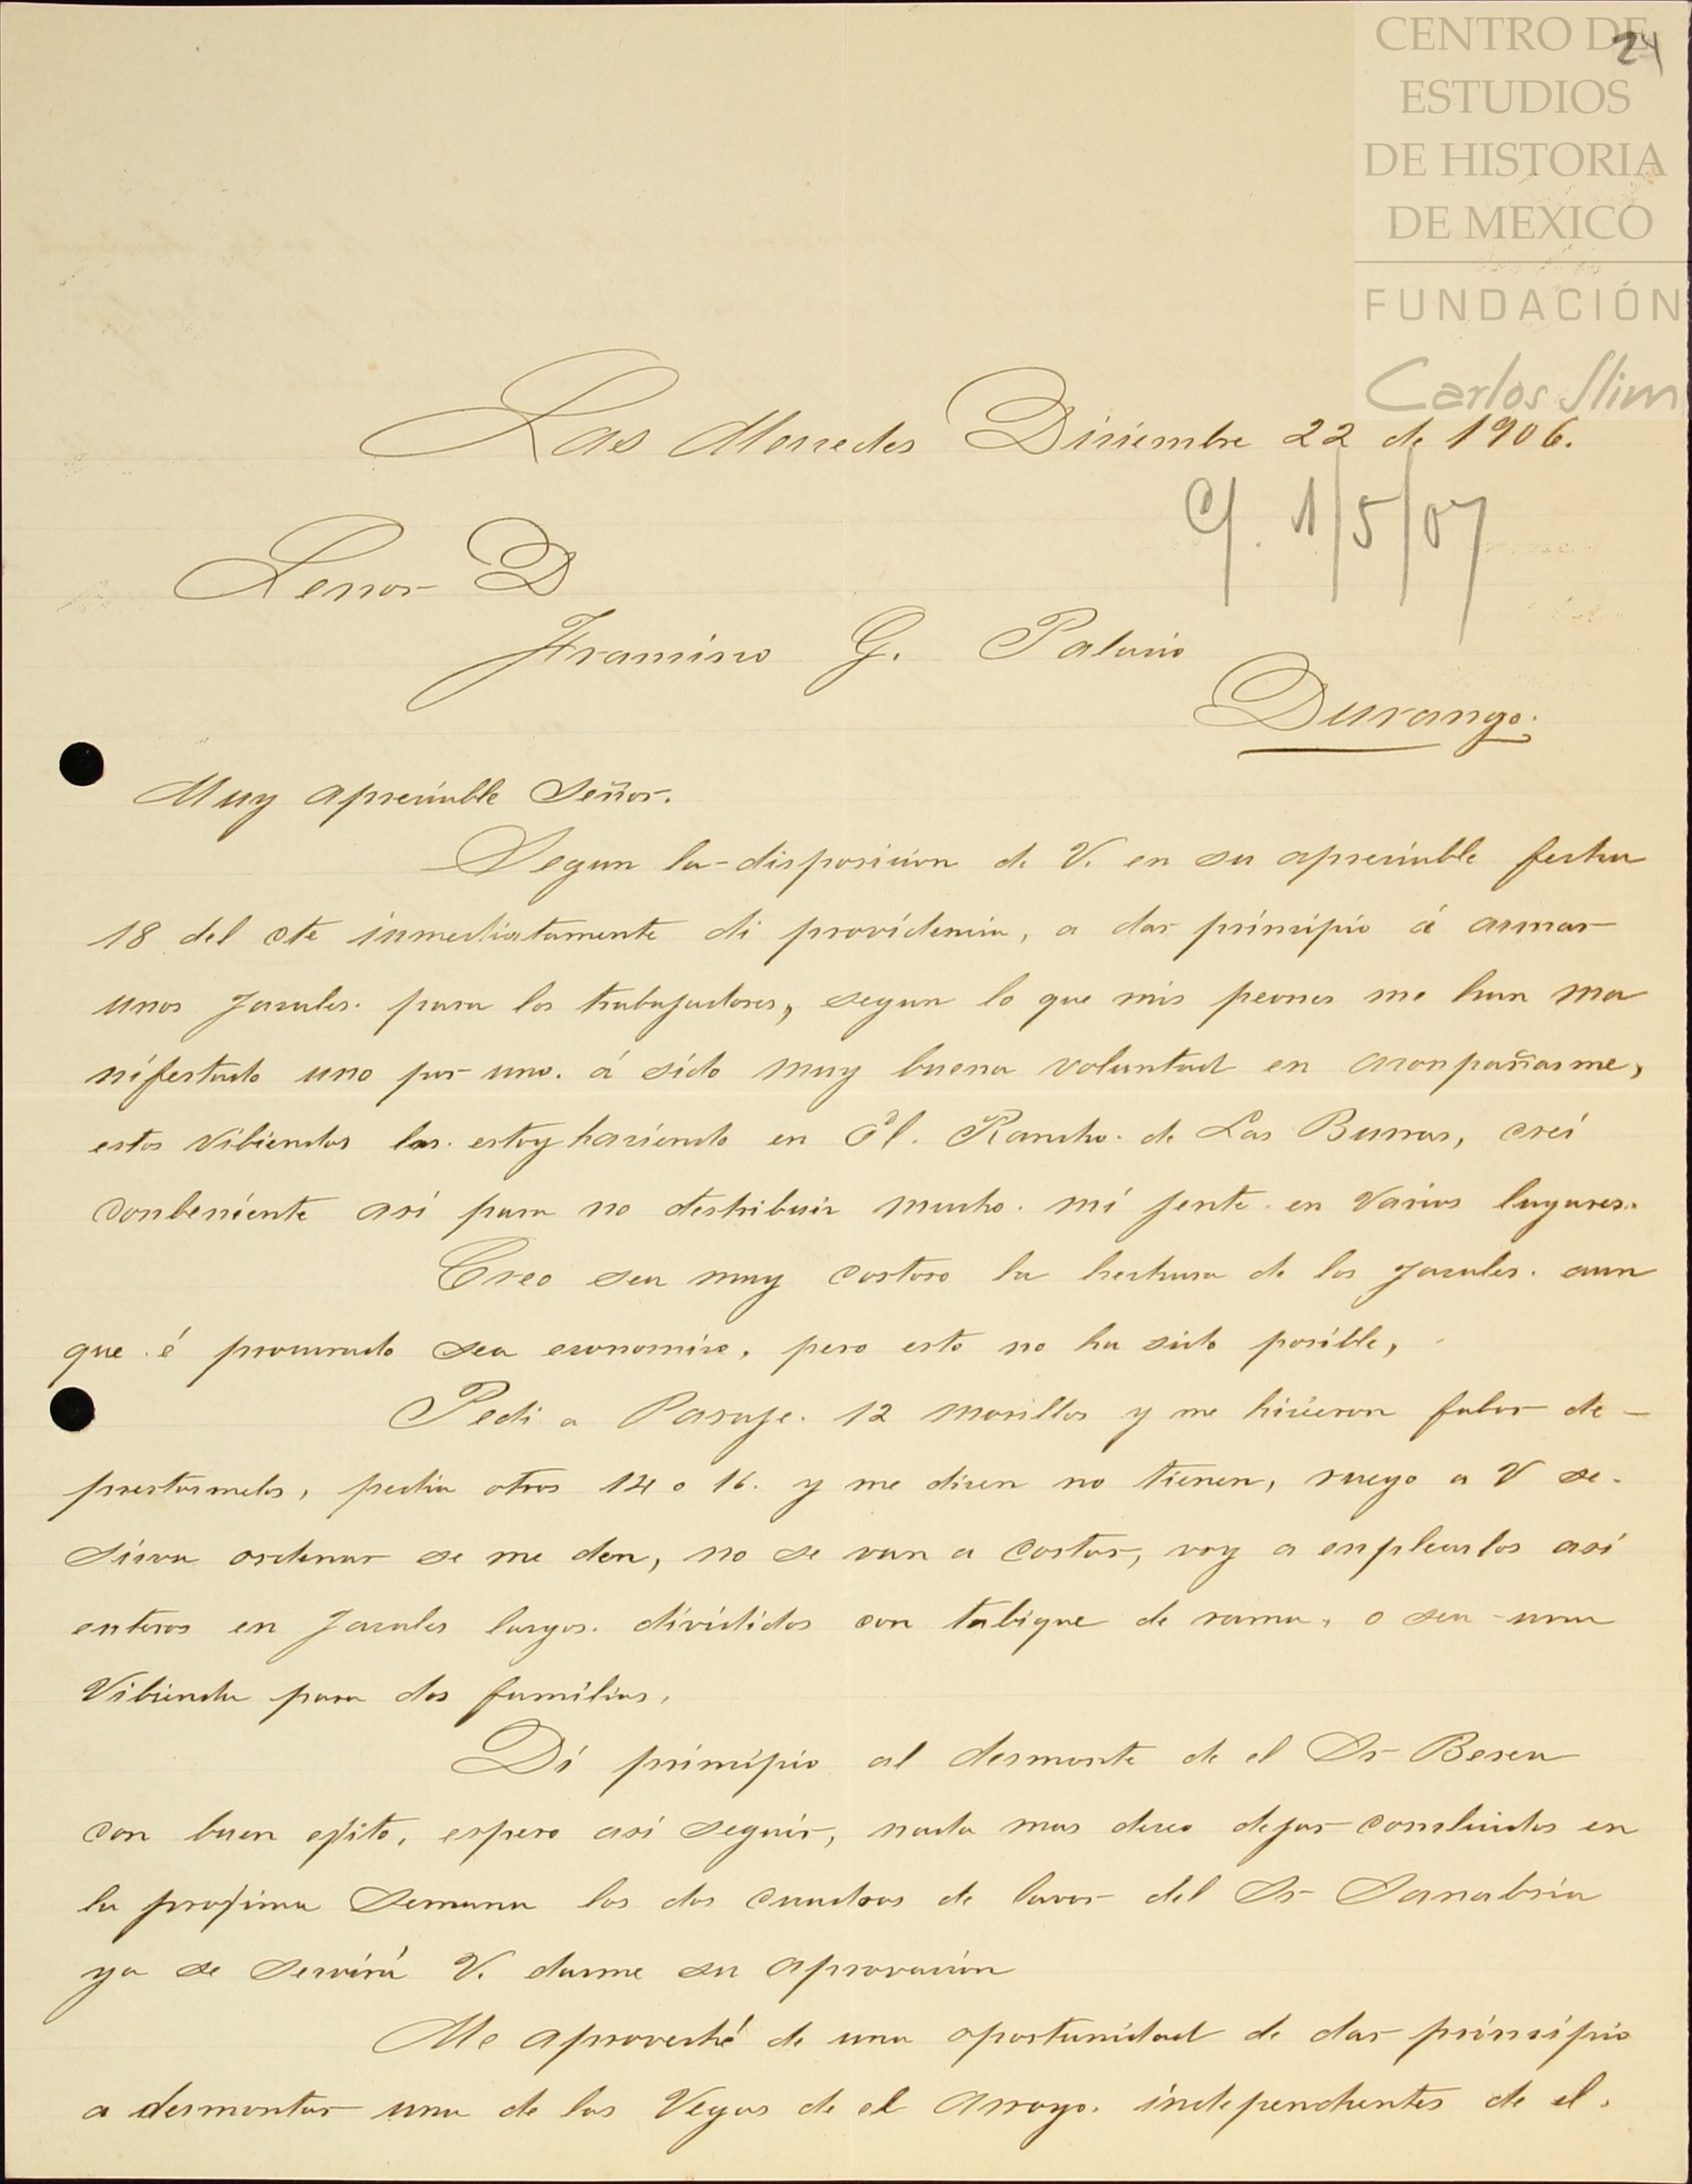 CENTRO DE
ESTUDIOS
DE HISTORIA
DE MEXICO
FUNDACIÓN
Carlos Slim
24
Las Mercedes Diciembre 22 de 1906.
C/. 1/5/07
Señor D
Francisco G. Palacio
Durango.
Muy apreciable Señor.
Segun la disposicion de V. en su apreciable fecha
18 del cte inmediatamente di providencia, a dar principio á armar
unos Jacales. para los trabajadores, segun lo que mis peones me han ma
nifestado uno por uno. á sido muy buena voluntad en aconpañarme,
estas vibiendas las. estoy haciendo en El. Rancho. de Las Burras, crei
conbeniente asi para no destribuir mucho. mi jente. en varios lugares.
Creo sea muy costoso la hechura de los jacales. aun
que é procurado sea economico, pero esto no ha sido posible,
Pedi a Pasaje. 12 morillos y me hicieron fabor de
prestarmelos, pedia otros 14 o 16. y me dicen no tienen, ruego a V se
sirva ordenar se me den, no se van a cortar, voy a enplearlos asi
enteros en Jacales largos. divididos con tabique de rama, o sea una
Vibienda para dos familias,
Di principio al desmonte de el Sr Beren
con buen exito, espero asi seguir, nada mas deseo dejar concluidos en
la proxima Semana los dos cuadros de lavor del Sr Sanabria
ya se servirá V. darme su aprovacion
Me aproveché de una oportunidad de dar principio
a desmontar una de las Vegas de el Arroyo. independientes de el.